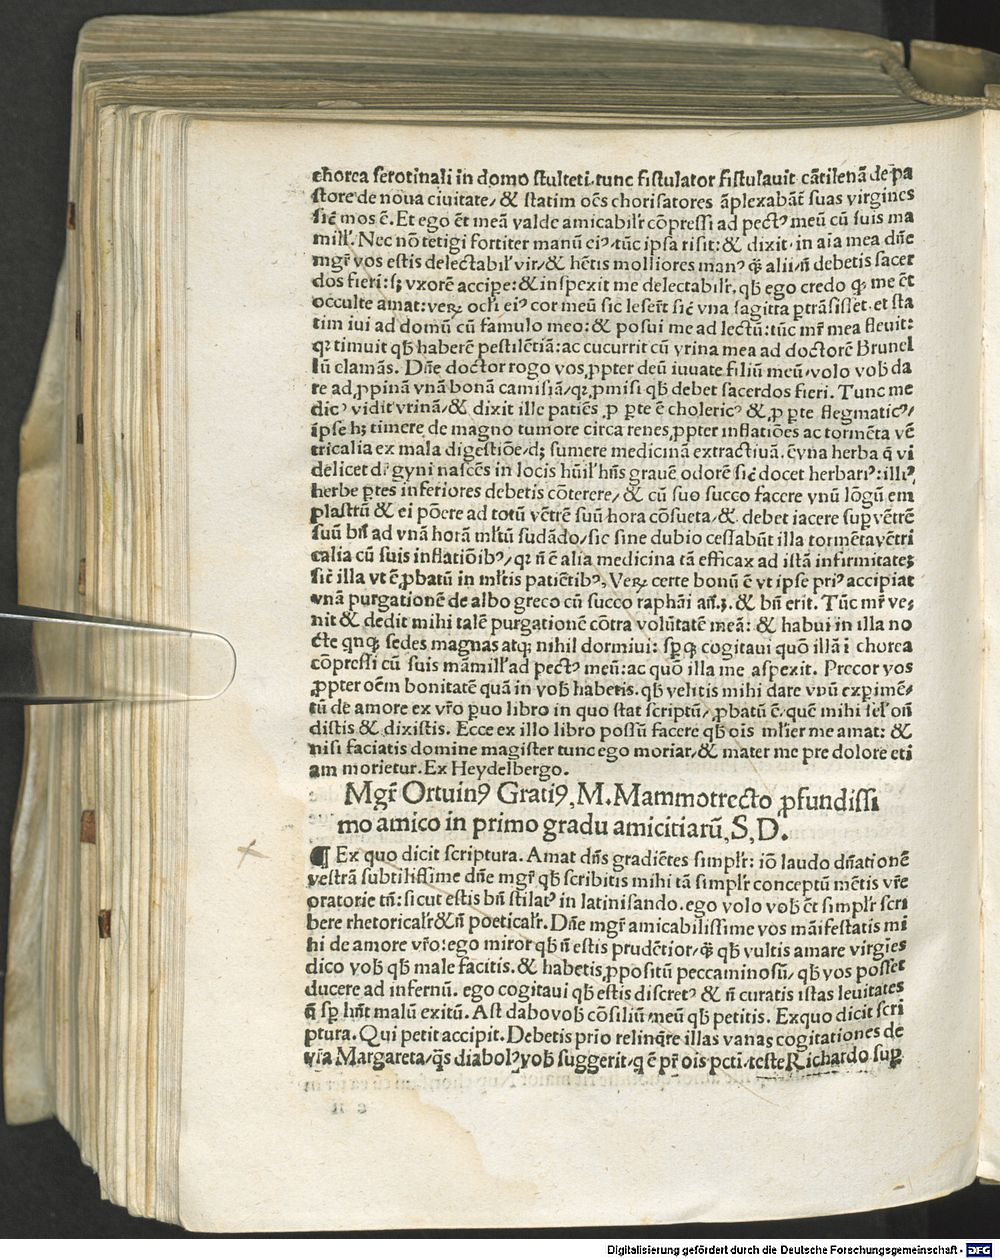 chorea serotinali in domo sculteti. tunc fistulator fistulauit cātilenā de pa
store de noua ciuitate/ & statim oēs chorisatores āplexabāt suas virgines
sič mos ē. Et ego ēt meā valde amicabilr̄ cōpressi ad pectꝰ meū cū suis ma
mill'. Nec nō tetigi fortiter manū eiꝰ. tūc ipsa risit: & dixit. in aīa mea dn̄e
mgr̄ vos estis delectabil' vir/ & hētis molliores manꝰ ꝙ̄ alii/ n̄ debetis sacer
dos fieri: sꝫ vxorē accipe: & inspexit me delectabilr̄. qḃ ego credo ꝙ me ēt
occulte amat: veꝝ ocl'i eiꝰ cor meū sic lesert̄ sič vna sagitta ꝑtrāsisset. et sta
tim iui ad domū cū famulo meo: & posui me ad lectū: tūc mr̄ mea fleuit:
qꝛ timuit qḃ haberē pestilētiā: ac cucurrit cū vrina mea ad doctorē Brunel
lū clamās. Dn̄e doctor rogo vos ꝓpter deū iuuate filiū meū/ volo voḃ da
re ad ꝓpinā vnā bonā camisiā/ qꝛ ꝓmisi qḃ debet sacerdos fieri. Tunc me
dicꝰ vidit vrinā/ & dixit ille patiēs ꝓ ꝑte ē cholericꝰ & ꝓ ꝑte flegmaticꝰ/
ipse hꝫ timere de magno tumore circa renes ꝓpter inflatiōes ac tormēta vē
tricalia ex mala digestiōe/ dꝫ sumere medicinā extractiuā. ē vna herba q̄ vi
delicet dr̄ gyni nascēs in locis hūil' hn̄s grauē odorē sič docet herbariꝰ: illiꝰ
herbe ꝑtes inferiores debetis cōterere/ & cū suo succo facere vnū lōgū em
plastrū & ei pōere ad totū vētrē suū hora cōsueta/ & debet iacere suꝑ vētrē
suū bn̄ ad vnā horā ml'tū sudādo/ sic sine dubio cessabūt illa tormēta vētri
calia cū suis inflatiōibꝰ/ qꝛ n̄ ē alia medicina tā efficax ad istā infirmitateꝫ
sič illa vt ē ꝓbatū in ml'tis patiētibꝰ, Veꝝ certe bonū ē vt ipse priꝰ accipiat
vnā purgationē de albo greco cū succo raphāi an̄.ʒ. & bn̄ erit. Tūc mr̄ ve⸗
nit & dedit mihi talē purgationē cōtra volūtatē meā: & habui in illa no
cte qnqꝫ sedes magnas atqꝫ nihil dormiui: sꝑqꝫ cogitaui quō illā ī chorea
cōpressi cū suis māmill' ad pectꝰ meū: ac quō illa me aspexit. Precor vos
ꝓpter oēm bonitatē quā in voḃ habetis. qḃ velitis mihi dare vnū exꝑimē⸗
tū de amore ex vr̄o ꝑuo libro in quo stat scriptū/ ꝓbatū ē. quē mihi sel' on̄
distis & dixistis. Ecce ex illo libro possū facere qḃ oīs ml'ier me amat: &
nisi faciatis domine magister tunc ego moriar/ & mater me pre dolore eti
am morietur. Ex Heydelbergo.
Mgr̄ Ortuinꝰ Gratiꝰ, M. Mammotrecto ꝓfundissi
mo amico in primo gradu amicitiarū, S, D.
¶ Ex quo dicit scriptura. Amat dn̄s gradiētes simplr̄: iō laudo dn̄ationē
vestrā subtilissime dn̄e mgr̄ qḃ scribitis mihi tā simplr̄ conceptū mētis vr̄e
oratorie tn̄: sicut estis bn̄ stilatꝰ in latinisando. ego volo voḃ ēt simplr̄ scri
bere rhetoricalr̄ & n̄ poeticalr̄. Dn̄e mgr̄ amicabilissime vos māifestatis mi
hi de amore vr̄o: ego miror qḃ n̄ estis prudētior/ ꝙ̄ qḃ vultis amare virgīes
dico voḃ qḃ male facitis. & habetis ꝓpositū peccaminosū/ qḃ vos posset
ducere ad infernū. ego cogitaui qḃ estis discretꝰ & n̄ curatis istas leuitates
q̄ sꝑ hn̄t malū exitū. Ast dabo voḃ cōsiliū meū qḃ petitis. Exquo dicit scri
ptura. Qui petit accipit. Debetis prīo relinq̄re illas vanas cogitationes de
vr̄a Margareta/ q̄s diabolꝰ voḃ suggerit/ q̄ ē pr̄ oīs pctī/ teste Richardo suꝑ
Digitalisierung gefördert durch die Deutsche Forschungsgemeinschaft - DFG